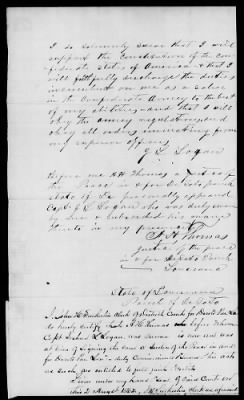 I do solemnly swear that I will
support the Constitution of the Con-
federate States of America & that I
will faithfully discharge the duties
incumbent on me as a
in the Confederate Army to the best
of my abilities, and that I will
obey the army regulations, and
obey all orders from
my superior officers
J. L. Logan
Before me A H Thomas a Justice of
the Peace in & for De Soto parish
State of La personally appeared
Capt J L Logan who was duly sworn
by me & subscribed his name
hereto in my presence
A H Thomas
Justice of the peace
in & for De Soto Parish
Louisiana
State of Louisiana
Parish of De Soto
I, John Clerk of District Court for
do hereby certify that A H Thomas who before whom
Capt Logan was sworn is now and was
at time of signing the same a Justice of the Peace in and
for the
as such are entitled to full faith
Given under my hand & Seal of Said Court on
this August